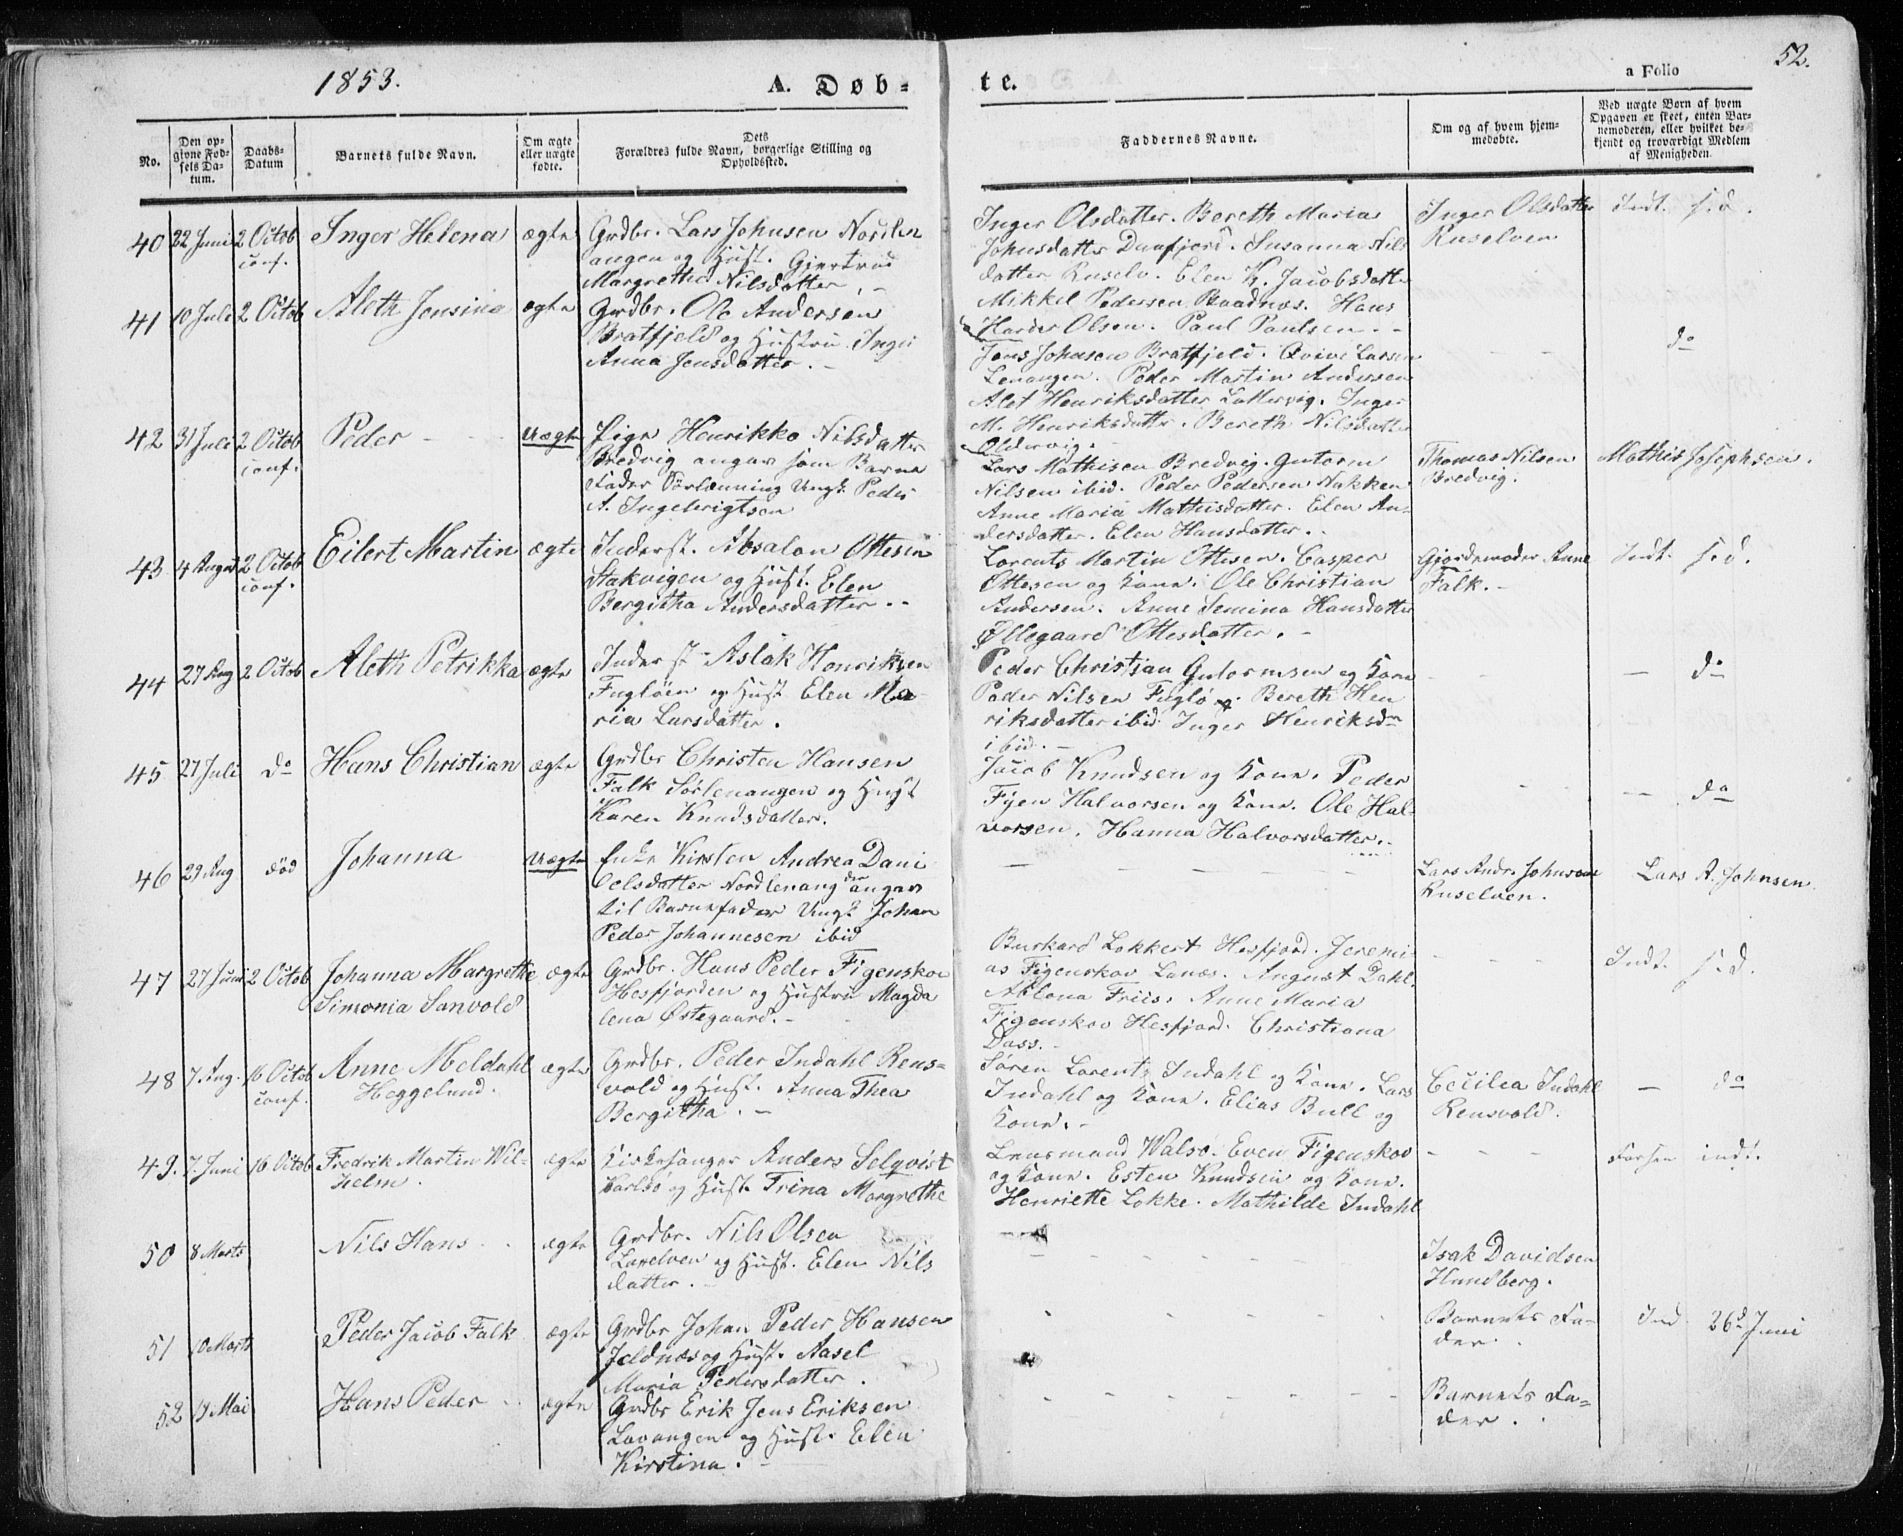 1853.
A. Døb-
te.
a Folio
52.
No.
Den op-
givne Fød-
sels Da-
tum.
Daabs-
Datum
Barnets fulde Navn.
Om ægte
eller uægte
fødte.
Dets
Forældres fulde Navn, borgerlige Stilling og
Opholdssted.
Faddernes Navne.
Om og af hvem hjem-
medøbte.
Ved uægte Børn af hvem
Opgaven er skeet, enten Bar-
nemoderen, eller hvilket be-
kjendt og troværdigt Medlem
af Menigheden.
40 22 Juni 2 Octob conf. Inger Helena ægte
Grdbr. Lars Johnsen Nordlen
angen og Hust. Gjertrud
Margrethe Nilsdatter. -
Inger Olsdatter. Bereth Maria
Johnsdatter Daafjord. Susanna Nils
datter Ruselv. Elen K. Jacobsdatter
Mikkel Pedersen Baadnæs. Hans
Harder Olsen. Paul Paulsen. -
Inger Olsdatter
Ruselven
Indt. s. d.
41 10 Juli 2 Octob Aleth Jensina ægte
Grdbr. Ole Andersen
Bratfjeld og Hustru Inger
Anna Jensdatter. -
Jens Johnsen Bratfjeld. Qvive Larsen
Lenangen. Peder Martin Andersen
Alet Henriksdatter Lattervig. Inger
M. Henriksdatter. Bereth Nilsdatter
Oldervig.
do
42 31 Juli 2 Octob conf. Peder Uægte
Pige Henrikka Nilsdatter
Bredvig angav som Barne
fader Sörlenning Ungk. Peder
A. Ingebrigtsen
Lars Mathisen Bredvig. Gutorm
Nilsen ibid. Peder Pedersen Nakken
Anne Maria Mathisdatter. Elen An-
dersdatter. Elen Hansdatter. -
Thomas Nilsen
Bredvig.
Mathis Josephsen.
43 4 August 2 Octob conf. Eilert Martin ægte
Inderst. Absalon Ottesen
Stakvigen og Hust. Elen
Bergitha Andersdatter. -
Lorents Martin Ottesen. Casper
Ottesen og Kone. Ole Christian
Andersen. Anne Semina Hansdatter
Øllegaard Ottesdatter. -
Gjordemoder Anne
Falk. -
Indt. s. d.
44 27 Aug 2 Octob Aleth Petrikka ægte
Inderst. Aslak Henriksen
Fugløen og Hust Elen Ma-
ria Larsdatter.
Peder Christian Gutormsen og Kone
Peder Nilsen Fuglø. Bereth Hen
riksdatter ibid. Inger Henriksdr
ibid. -
do
45 27 Juli do Hans Christian ægte
Grdbr Christen Hansen
Falk Sørlenangen og Hust
Karen Knudsdatter.
Jacob Knudsen og Kone. Peder
Fyen Halvorsen og Kone. Ole Hal-
vorsen. Hanna Halvorsdatter. -
do
46 29 Aug død Johanna Uægte
Enke Kirsten Andrea Dani
elsdatter Nordlenang der angav
til Barnefader Ungk Johan
Peder Johannesen ibid
Lars Andr. Johnsen
Ruselven.
Lars A. Johnsen
47 27 Juni 2 Octob Johanna Margrethe ægte
Simonia Sanvold
Grdbr. Hans Peder Figenskov
Hesfjorden og Hustru Magda
lena Østegaard. -
Burkard Lokkert Hesfjord. Jeremi-
as Figenskov Lanæs. August Dahl.
Ablona Friis. Anne Maria
Figenskov Hesfjord. Christiana
Dass. -
Indt. s. d.
48 7 Aug. 16 Octob conf. Anne Meldahl ægte
Heggelund.
Grdbr. Peder Indahl Rens-
vold og Hust. Anna Thea
Bergitha. -
Søren Lorents Indahl og Kone. Lars
Indahl og Kone. Elias Bull og
Kone. -
Cecilia Indahl
Rensvold.
do
49. 7. Juni 16 Octob Fredrik Martin Wil-
helm. ægte
Kirkesanger Anders Selqvist
Karlsø og Hust. Trina Margrethe
Lensmand Walsø. Even Figenskov
og Kone. Esten Knudsen og Kone.
Henriette Lokke. Mathilde Indahl
indt.
50 8 Marts Nils Hans ægte
Grdbr. Nils Olsen
og Hust. Elen Nils
datter. -
Isak Davidsen
Hundberg.
51 10 Marts Peder Jacob Falk ægte
Grdbr Johan Peder Hansen
Jeldnæs og Hust. Aasel
Maria Pedersdatter.
Barnets Fa-
der.
Ind. 26d Juni
52 17 Mai Hans Peder ægte
Grdbr Erik Jens Eriksen
Lavangen og Hust. Elen
Kirstina.
Barnets Fa-
der.